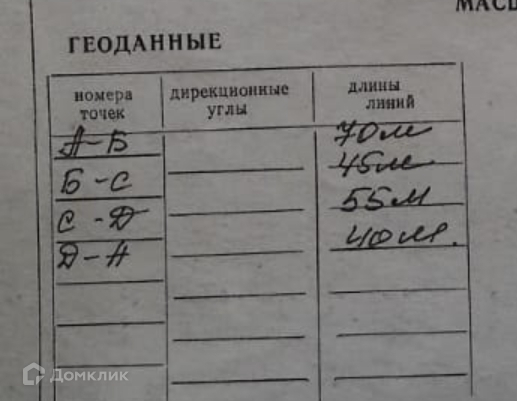 МАСШ
ГЕОДАННЫЕ
номера точек
дирекционные углы
длины линий
А-Б 70м
Б-С 45м
С-Д 55м
Д-А 40м.
Домклик